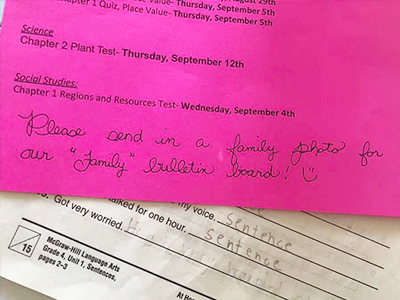 August 29th
Chapter 1 Quiz, Place Value- Thursday, September 5th
Place Value- Thursday, September 5th
Science
Chapter 2 Plant Test- Thursday, September 12th
Social Studies:
Chapter 1 Regions and Resources Test- Wednesday, September 4th
Please send in a family photo for
our "Family" bulletin board! :)
my voice. Sentence
talked for one hour. Sentence
5. Got very worried. H
15
McGraw-Hill Language Arts
Grade 4, Unit 1, Sentences,
pages 2–3
At Ho